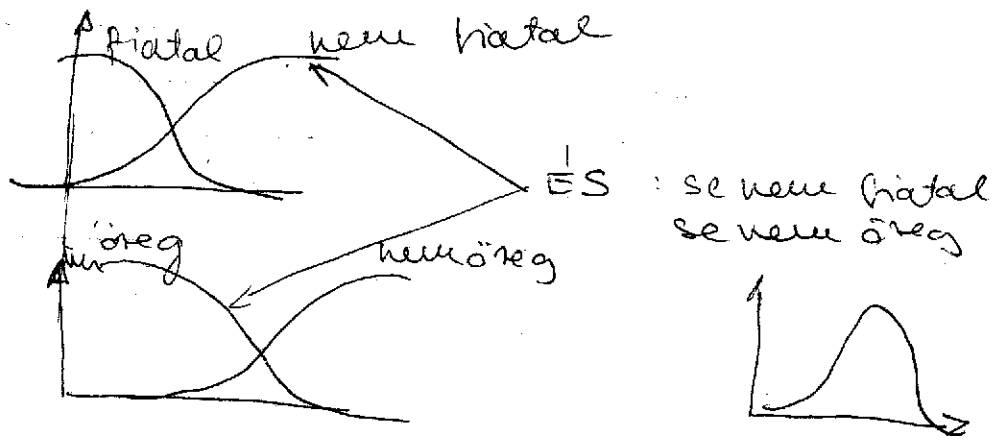 fiatal nem fiatal
ÉS : se nem fiatal
se nem öreg
öreg nem öreg